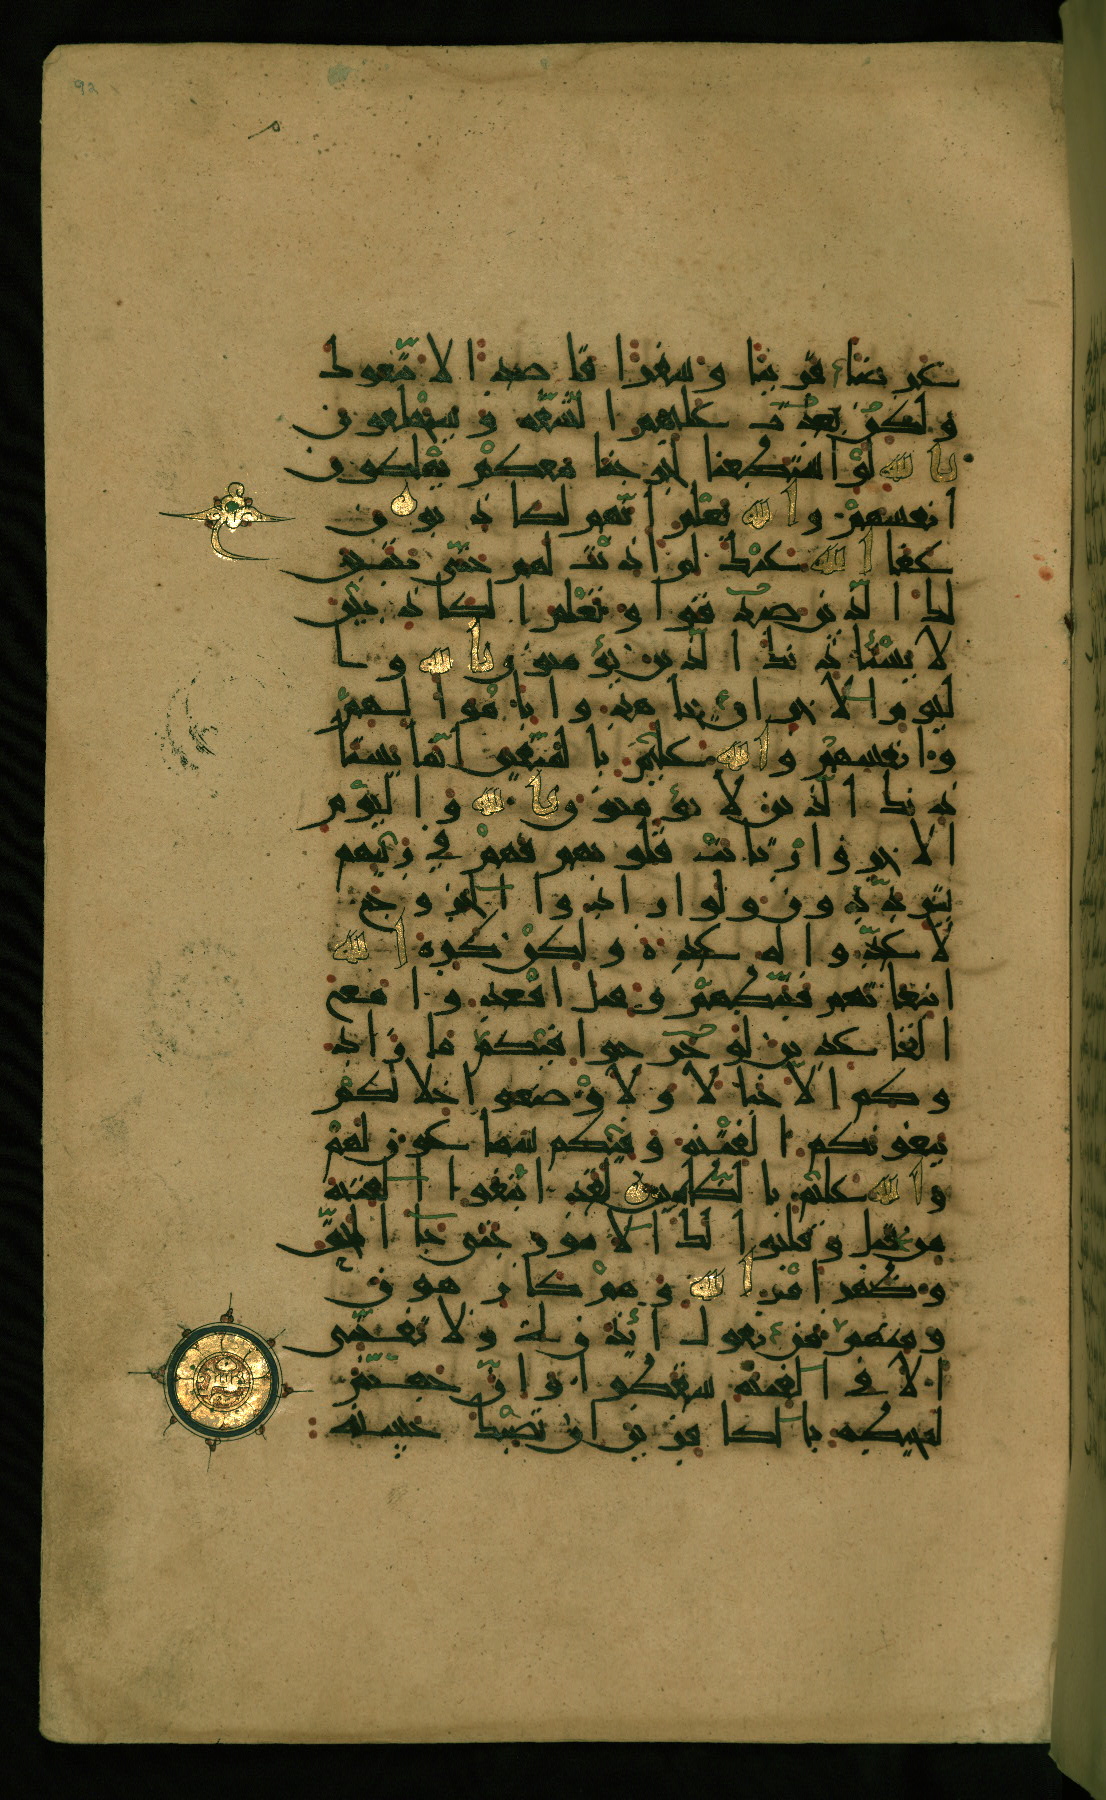 92
عرضا قريبا وسفرا قاصدا لاتبعوك
ولكن بعدت عليهم الشقة وسيحلفون
بالله لو استطعنا لخرجنا معكم يهلكون
انفسهم والله يعلم انهم لكاذبون
عفا الله عنك لم اذنت لهم حتى يتبين
لك الذين صدقوا وتعلم الكاذبين
لا يستأذنك الذين يؤمنون بالله وا
ليوم الاخر ان يجاهدوا باموالهم
وانفسهم والله عليم بالمتقين انما يستأ
ذنك الذين لا يؤمنون بالله واليوم
الاخر وارتابت قلوبهم فهم في ريبهم
يترددون ولو ارادوا الخروج
لاعدوا له عدة ولكن كره الله
انبعاثهم فثبطهم وقيل اقعدوا مع
القاعدين لو خرجوا فيكم ما زاد
وكم الا خبالا ولاوضعوا خلالكم
يبغونكم الفتنة وفيكم سماعون لهم
والله عليم بالظالمين لقد ابتغوا الفتنة
من قبل وقلبوا لك الامور حتى جا الحق
وظهر امر الله وهم كارهون
ومنهم من يقول ائذن لي ولا تفتني
الا في الفتنة سقطوا وان جهنم
لمحيطة بالكافرين ان تصبك حسنة